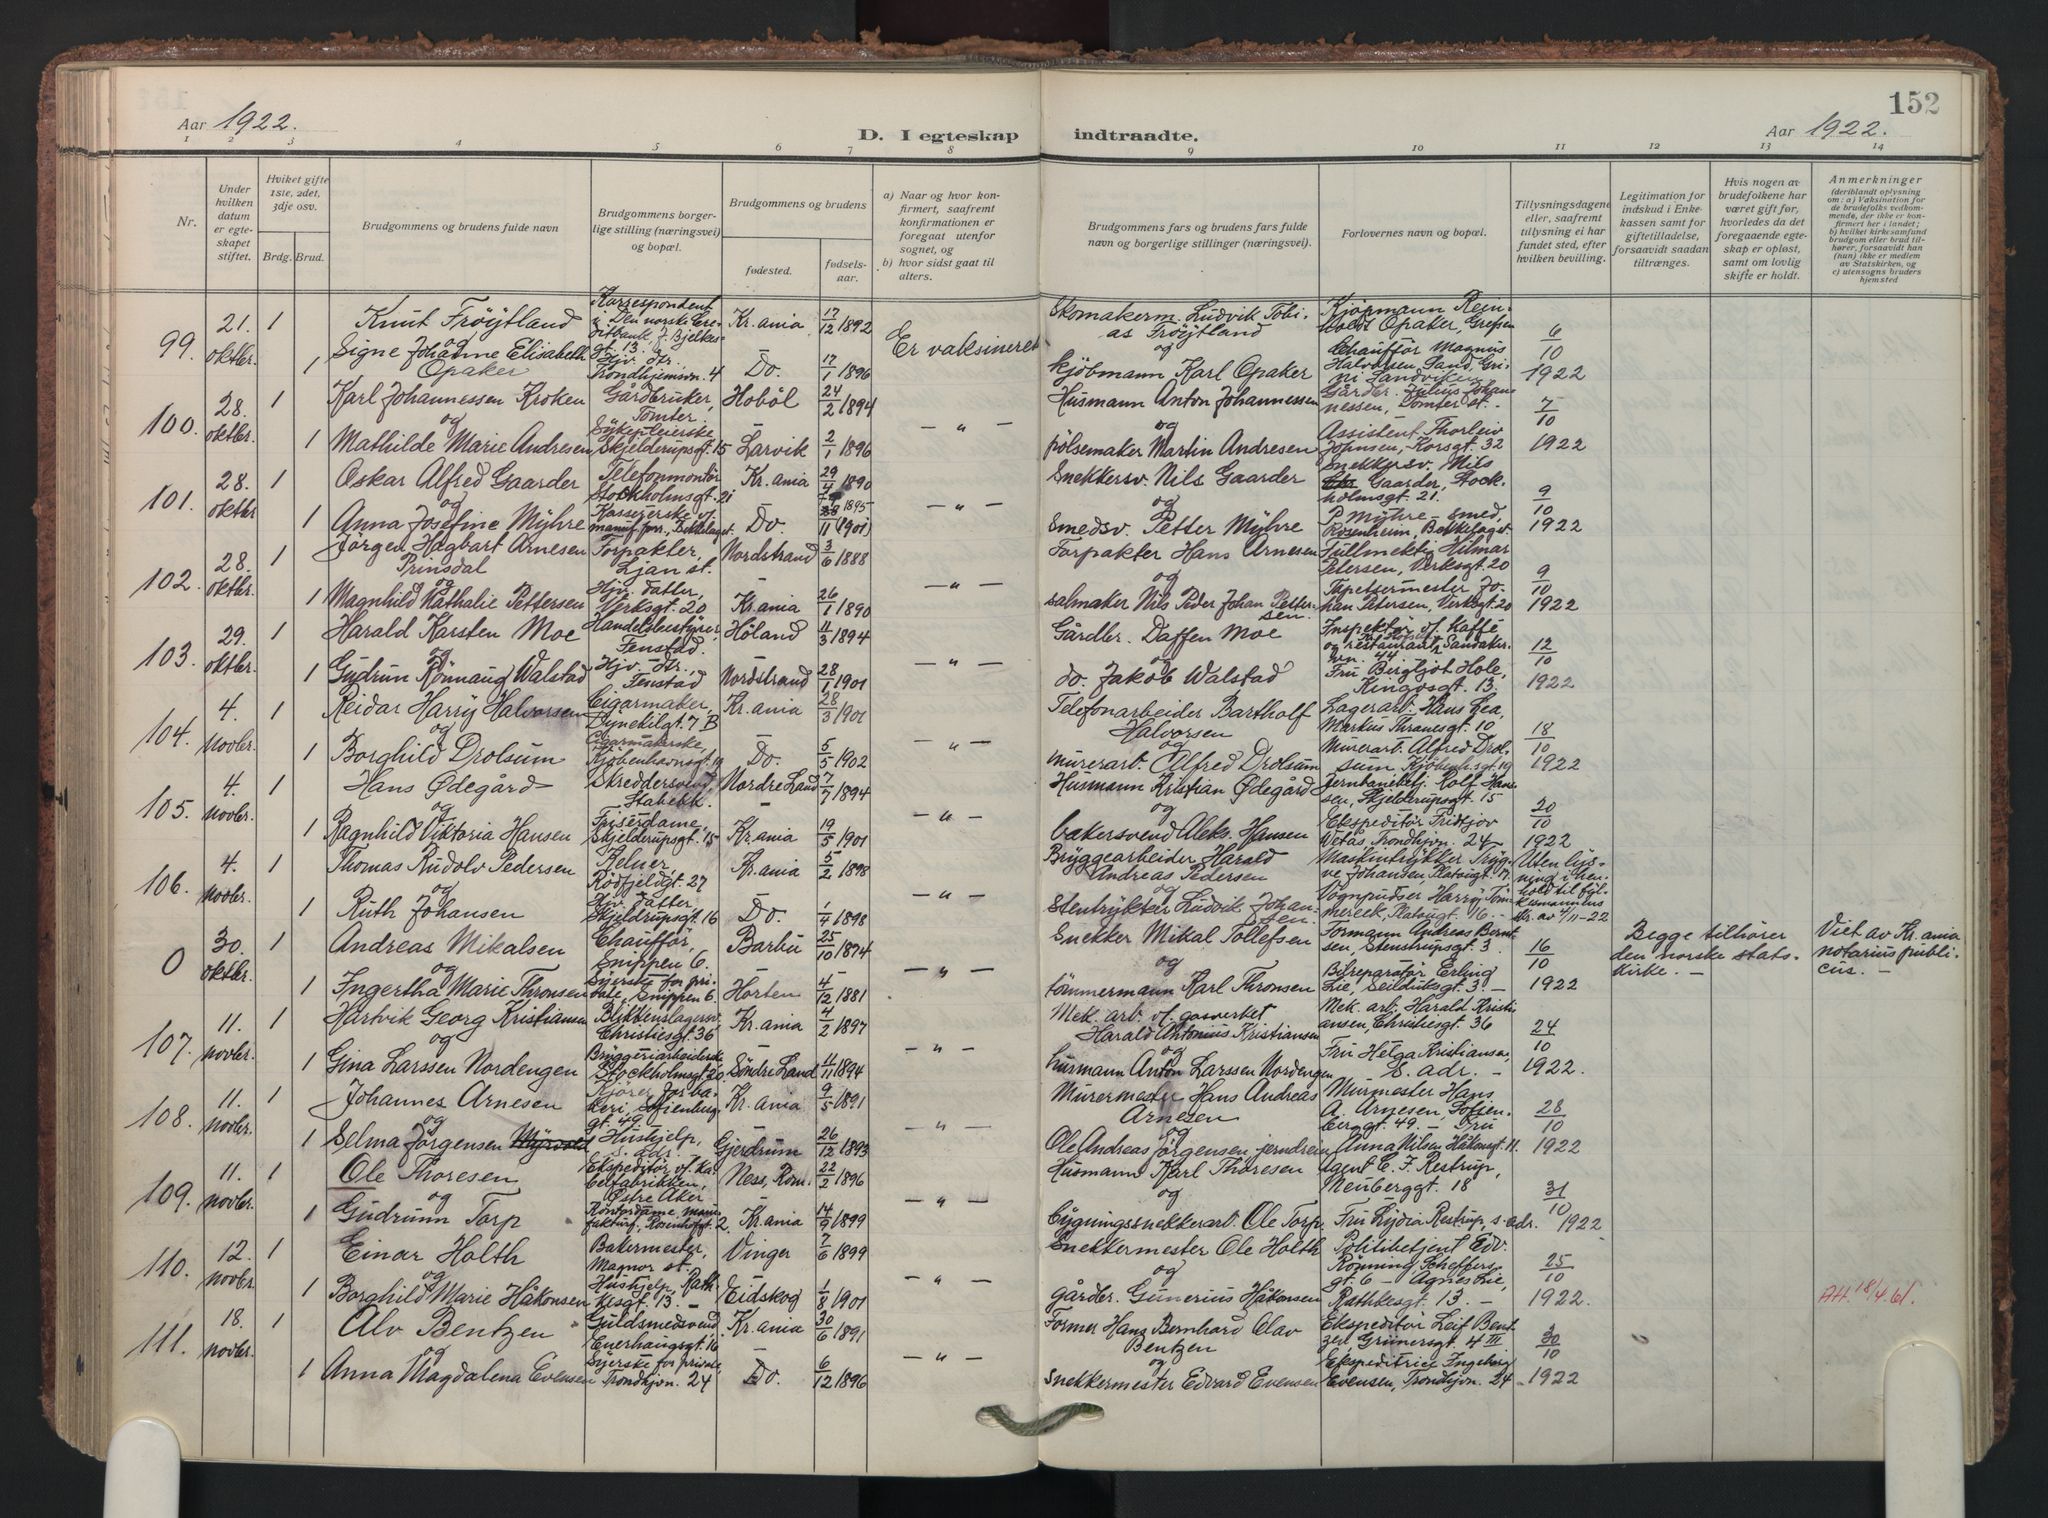 152
Aar 1922.
D. I egteskap indtraadte.
Aar 1922.
1 2 3 4 5 6 7 8 9 10 11 12 13 14
Nr.
Under hvilken datum er egteskapet stiftet.
Hvilket gifte 1ste, 2det, 3dje osv.
Brdg. Brud.
Brudgommens og brudens fulde navn
Brudgommens borgerlige stilling (næringsvei) og bopæl.
Brudgommens og brudens
fødested.
fødselsaar.
a) Naar og hvor konfirmert, saafremt konfirmationen er foregaat utenfor sognet, og
b) hvor sidst gaat til alters.
Brudgommens fars og brudens fars fulde navn og borgerlige stillinger (næringsvei).
Forlovernes navn og bopæl.
Tillysningsdagene eller, saafremt tillysning ei har fundet sted, efter hvilken bevilling.
Legitimation for indskud i Enkekassen samt for giftetilladelse, forsaavidt saadan tiltrænges.
Hvis nogen av brudefolkene har været gift før, hvorledes da det foregaaende egteskap er opløst, samt om lovlig skifte er holdt.
Anmerkninger
(deriblandt oplysning om: a) Vaksination for de brudefolks vedkommende, der ikke er konfirmert her i landet; b) hvilket kirkesamfund brudgom eller brud tilhører, forsaavidt han (hun) ikke er medlem av Statskirken, og c) utensogns bruders hjemsted
99. 21. oktbr. 1 Knut Fröijtland Korrespondent i Den norske Creditbank, J. Bjelkesgt. 13. Kr.ania 17/12 1892 Er vaksineret Skomakerm. Ludvik Tobias Fröijtland Kjöpmann Reinholdt Opaker, Grefsen 6/10 1922
og
1 Signe Johanne Elisabeth Opaker Hjv. dtr. Trondhjemsvn. 4 Do. 17/1 1896 og Kjöbmann Karl Opaker Chaufför Magnus Halvorsen, Sand, Grini Sandviken
100. 28. oktbr. 1 Karl Johannessen Kroken Gårdbruker, Tomter Hoböl 24/2 1894 — " — Husmann Anton Johannessen Gårdbr. Julius Johannessen, Tomter st. 7/10 1922
og
1 Mathilde Marie Andresen Sykepleierske Skjelderupsgt. 15 Larvik 2/1 1896 og Pölsemaker Martin Andresen Assistent Thorleiv Johnsen, Korsgt. 32
101. 28. oktbr 1 Oskar Alfred Gaarder Telefonmontör Stockholmsgt. 21 Kr.ania 29/4 1890 — " — Snekkersv. Nils Gaarder Snekkersv. Nils Gaarder, Stockholmsgt. 21. 9/10 1922
og
1 Anna Josefine Myhre Kasserske v. manuf. forr., Bekkelaget. Do. 1895 11 (1901) og Smedsv. Petter Myhre P. Myhre - smed, Rosenheim, Bekkelaget
102. 28. oktbr. 1 Jörgen Hagbart Arnesen Prinsdal Forpakter, Ljan st. Nordstrand 3/6 1888 — " — Forpakter Hans Arnesen Fullmektig Hilmar Petersen, Verksgt. 20 9/10 1922
og
1 Magnhild Nathalie Pettersen Hjv. datter, Verksgt. 20 Kr.ania 26/1 1890 og Salmaker Nils Peder Johan Pettersen Tapetsermester Johan Petersen, Verksgt. 20
103. 29. oktbr. 1 Harald Karsten Moe Handelsbestyrer, Fenstad. Höland 11/3 1894 — " — Gårdbr. Daffen Moe Inspektör v. Kaffe og restaurant, Sandakervn. 44 12/10 1922
og
1 Gudrun Rönnaug Walstad Hjv. dtr., Fenstad Nordstrand 28/1 1901 og do. Jakob Walstad Fru Bergljot Hole, Kingosgt. 13.
104. 4. novbr. 1 Reidar Harry Halvorsen Cigarmaker, Dynekilgt. 7 B Kr.ania 28/3 1901 — " — Telefonarbeider Bartholf Halvorsen Lagerarb. Hans Lea, Markus Thranesgt. 10 18/10 1922
og
1 Borghild Drolsum Cigarmakerske, Kjöbenhavnsgt. 19 Do. 5/5 1902 og Murerarb. Alfred Drolsum Murerarb. Alfred Drolsum, Kjöbenh.sgt. 19
105. 4. novbr. 1 Hans Ødegård Skreddersvend, Stabekk. Nordre Land 7/7 1894 — " — Husmann Kristian Ødegård Jernbanebetj. Rolf Hansen, Skjelderupsgt. 15 20/10 1922
og
1 Ragnhild Viktoria Hansen Friserdame, Skjelderupsgt. 15 Kr.ania 19/5 1901 og Bakersvend Aleks. Hansen Ekspeditör Fridtjov Wetås, Trondhjvn. 24
106. 4. novbr. 1 Thomas Rudolv Pedersen Kelner, Rödfjeldgt. 27 Kr.ania 5/2 1898 — " — Bryggearbeider Harald Andreas Pedersen Maskintrykker Trygve Johansen, Platousgt. 17. Uten lysning i henhold til fylkesmannens skr. av 4/11-22
og
1 Ruth Johansen Hjv. datter, Skjelderupsgt. 16 Do. 1/4 1898 og Stentrykker Ludvik Johansen Vognpudser Harry Tömmereek, Platousgt. 16.
0 30. oktbr. 1 Andreas Mikalsen Chaufför, Snippen 6. Barbu 25/10 1874 — " — Snekker Mikal Tollefsen Formann Andreas Berntsen, Stenstrupsgt. 3 16/10 1922 Begge tilhörer den norske statskirke. — Viet av Kr.ania notarius publicus. —
og
1 Ingertha Marie Thronsen Syerske for private, Snippen 6 Horten 4/12 1881 og Tömmermann Karl Thronsen Bilreparatör Erling Lie, Seilduksgt. 3. —
107. 11. novbr. 1 Hartvik Georg Kristiansen Blikkenslagersv. Christiesgt. 36 Kr.ania 4/2 1897 — " — Mek. arb. v. gasverket Harald Antonius Kristiansen Mek. arb. Harald Kristiansen, Christiesgt. 36 24/10 1922.
og
1 Gina Larssen Nordengen Bryggeriarbeiderske Stockholmsgt. 20. Söndre Land 11/11 1894 og Husmann Anton Larssen Nordengen Fru Helga Kristiansen, S. adr. —
108. 11. novbr. 1 Johannes Arnesen Kjörer for bakeri, Sofienberggt. 49 — Kr.ania 9/5 1891 — " — Murermester Hans Andreas Arnesen Murmester Hans A. Arnesen, Sofienberggt. 49. — Fru 28/10 1922
og
1 Selma Jörgensen Myrvold Hushjelp, s. adr. Gjerdrum 26/12 1893 og Ole Andreas Jörgensen, jerndreier Anna Nilsen Håkonsgt. 11.
109. 11. novbr. 1 Ole Thoresen Ekspeditör v. Kabelfabrikken, Østre Aker Ness, Rom. 22/2 1896 — " — Husmann Karl Thoresen Agent C. F. Restrup, Neuberggt. 18 31/10 1922
og
1 Gudrunn Torp Kontordame, manufaktur, Rosenhofgt. 2 Kr.ania 14/9 1899 og Bygningssnekkerarb. Ole Torp. Fru Lydia Restrup, s. adr.
110. 12. novbr. 1 Einar Holth Bakermester, Magnor st. Vinger 7/6 1899 — " — Snekkermester Ole Holth Politibetjent Edv. Rönning Scheffersgt. 6 — Agnes Lie, 25/10 1922.
og
1 Borghild Marie Håkonsen Hushjelp, Rathkesgt. 13. — Eidskog 1/8 1901 og gårdbr. Gunerius Håkonsen Rathkesgt. 13 — AH. 18/4 61.
111. 18. novbr. 1 Alv Bentzen Guldsmedsvend, Enerhaugsgt. 16 Kr.ania 30/6 1891 — " — Former Hans Bernhard Olav Bentzen Ekspeditör Leif Bentzen, Grünersgt. 4 III 30/10 1922
og
1 Anna Magdalena Evensen Syerske for private, Trondhjvn. 24 Do. 6/12 1896 og Snekkermester Edvard Evensen Ekspeditrice Ingeborg Evensen, Trondhjvn. 24